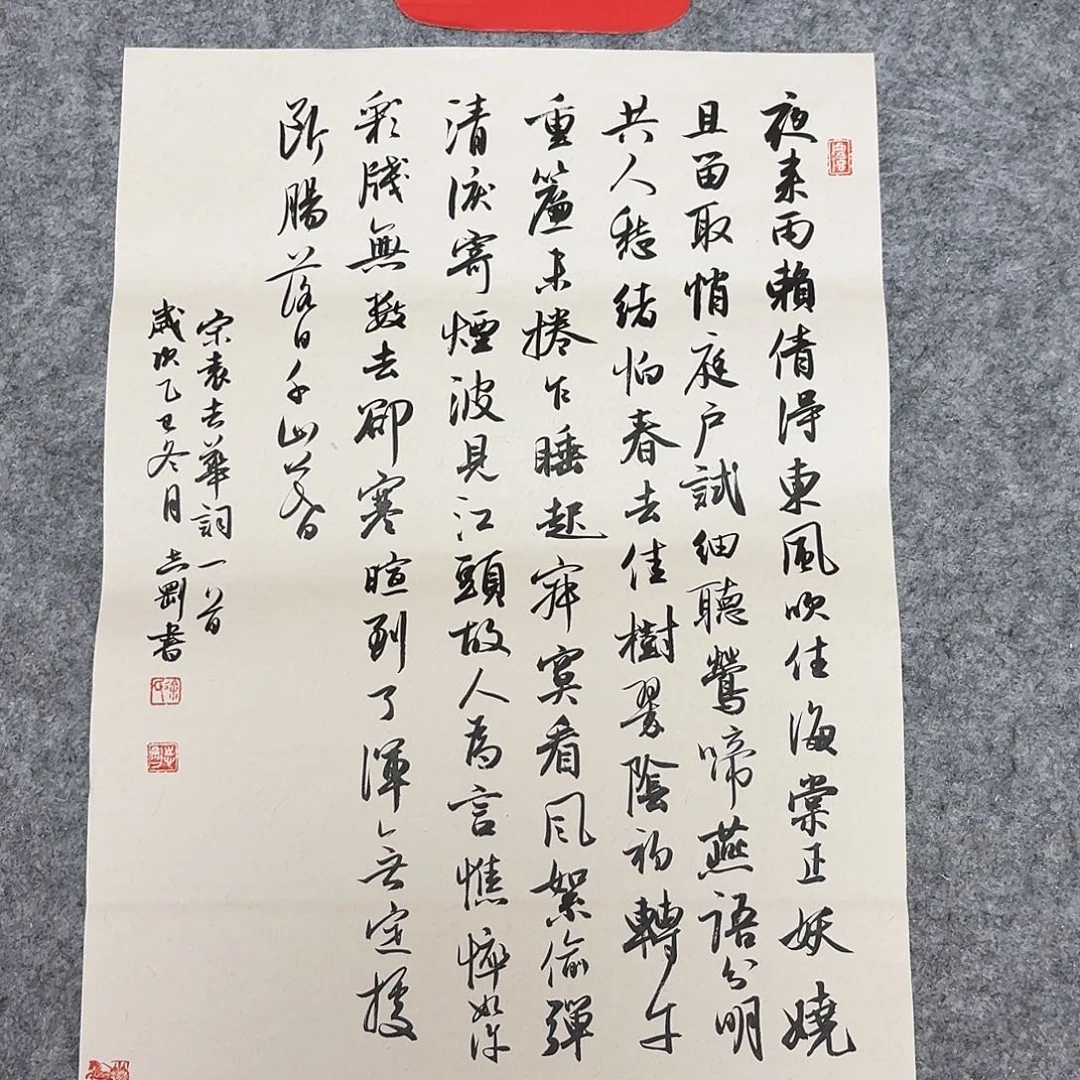 夜來雨賴倩得東風吹住海棠正妖嬈
且留取悄庭户試細聽鶯啼燕語分明
共人愁緒怕春去佳樹翠陰初轉午
重簾未捲乍睡起寂寞看風絮偷彈
清淚寄煙波見江頭故人為言憔悴如許
彩牋無數去卻寒暄到了渾無定據
斷腸落日千山暮
宋袁去華詞一首
歲次乙巳冬月志剛書